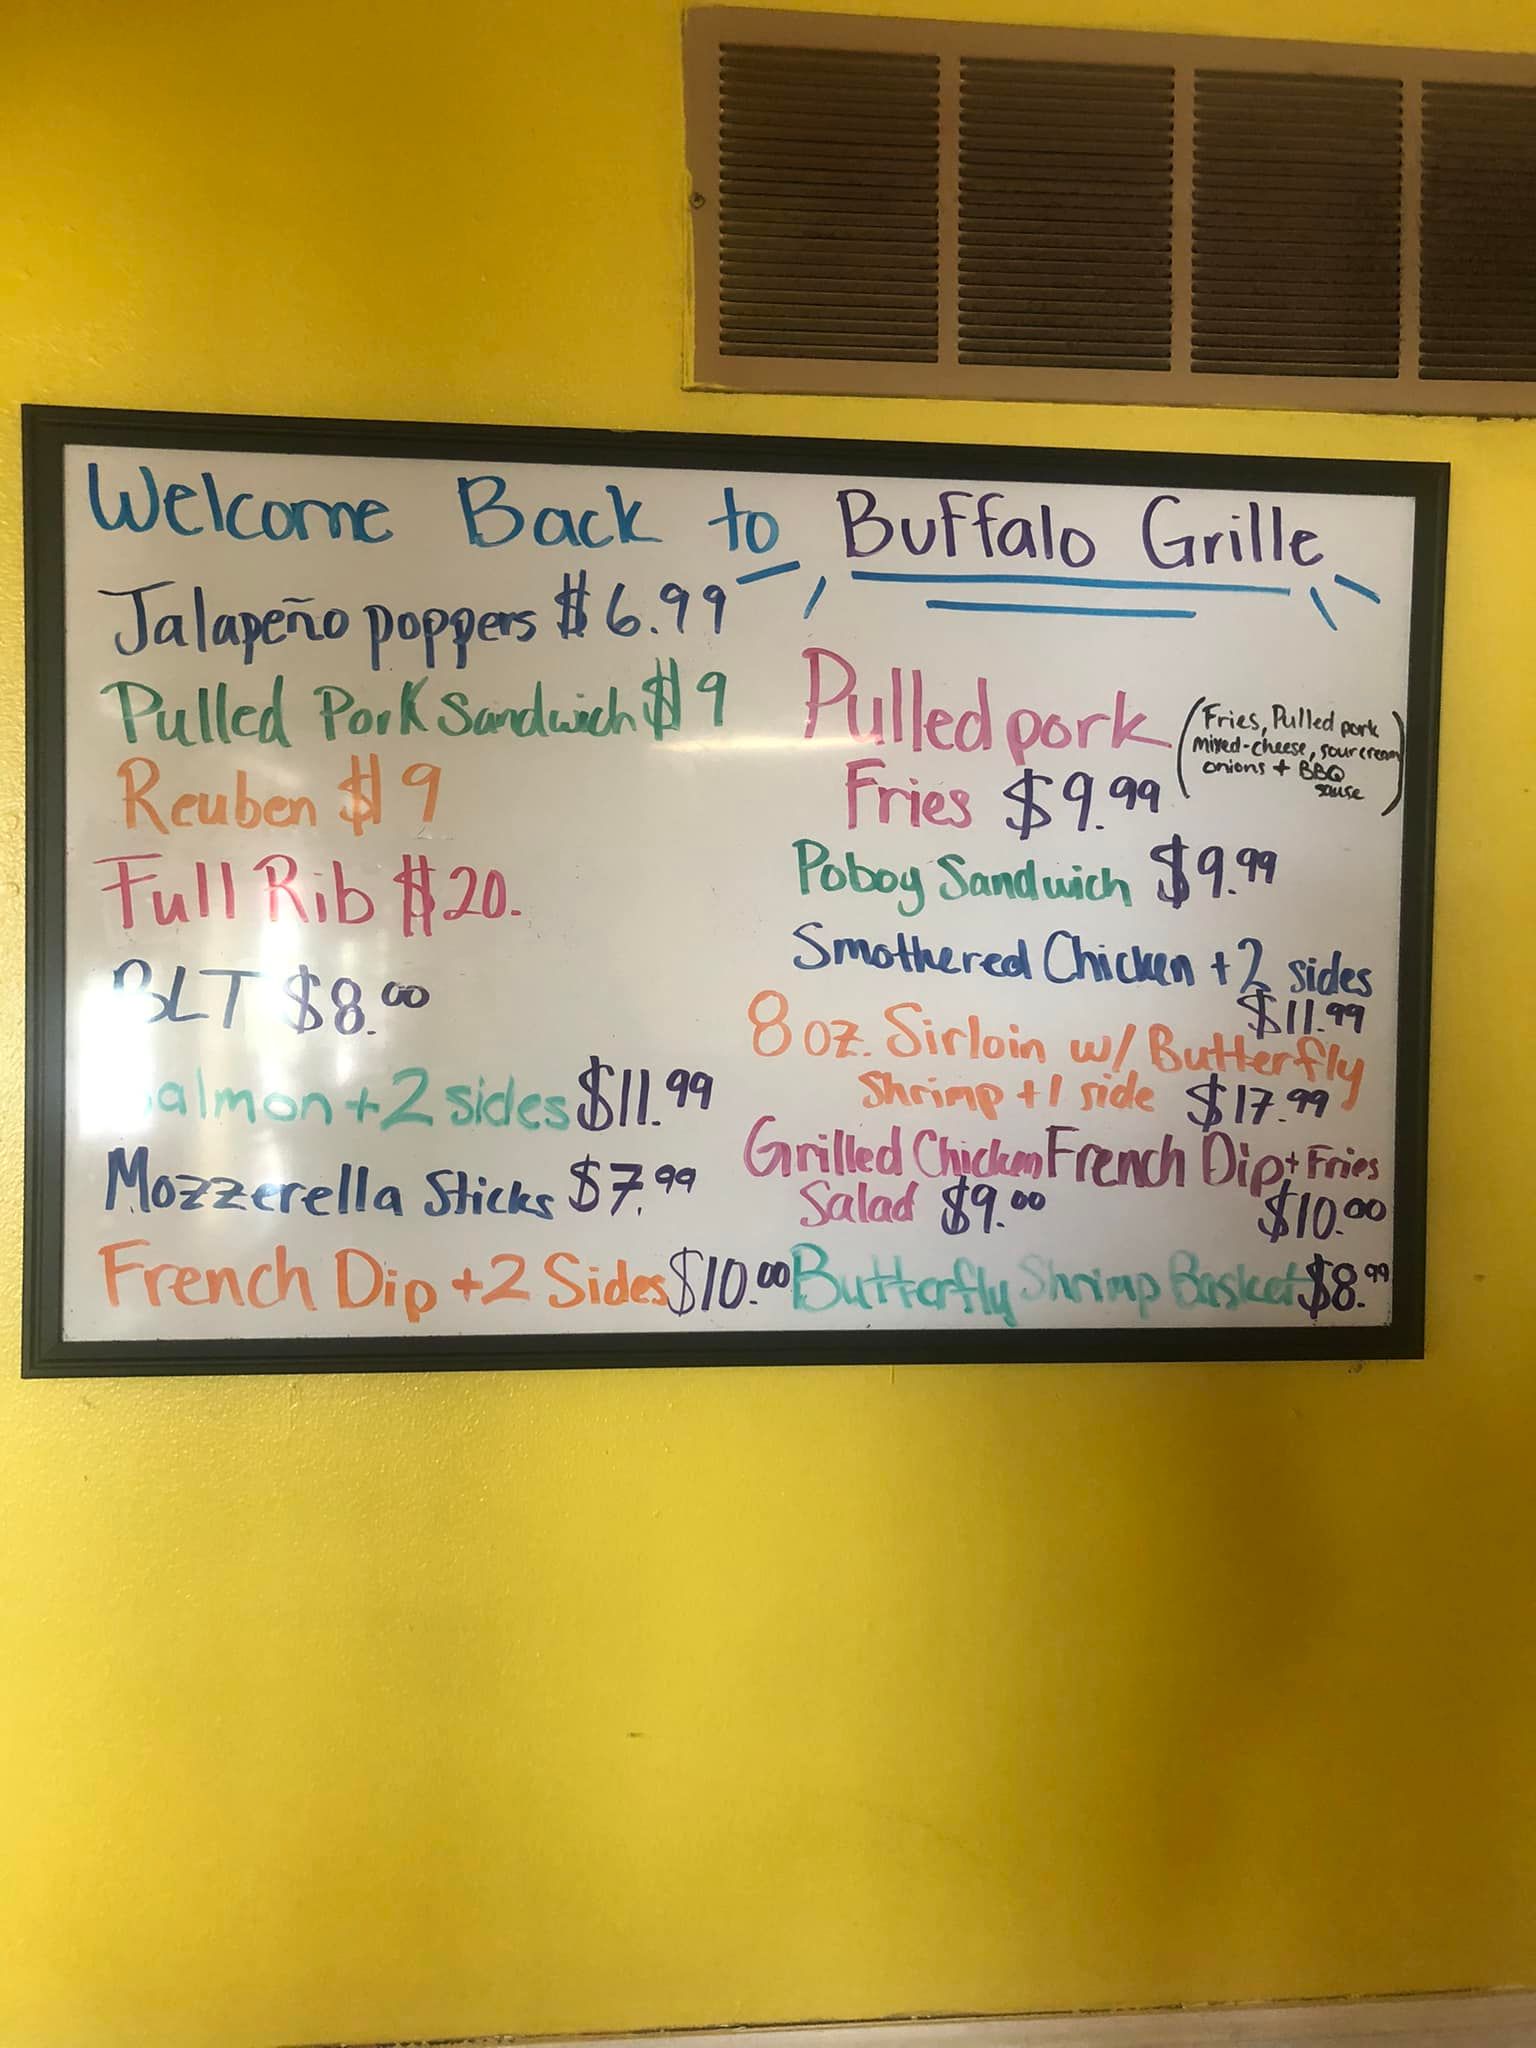 Welcome Back to Buffalo Grille
Jalapeño poppers $6.99
Pulled Pork Sandwich $9
Reuben $9
Full Rib $20.
BLT $8.00
Salmon + 2 sides $11.99
Mozzerella Sticks $7.99
French Dip + 2 Sides $10.00
Pulled pork
Fries $9.99
(Fries, Pulled pork
mixed-cheese, sour cream
onions + BBQ
sause)
Poboy Sandwich $9.99
Smothered Chicken + 2 sides
$11.99
8 oz. Sirloin w/ Butterfly
Shrimp + 1 side $17.99
Grilled Chicken
Salad $9.00
French Dip + Fries
$10.00
Butterfly Shrimp Basket $8.99